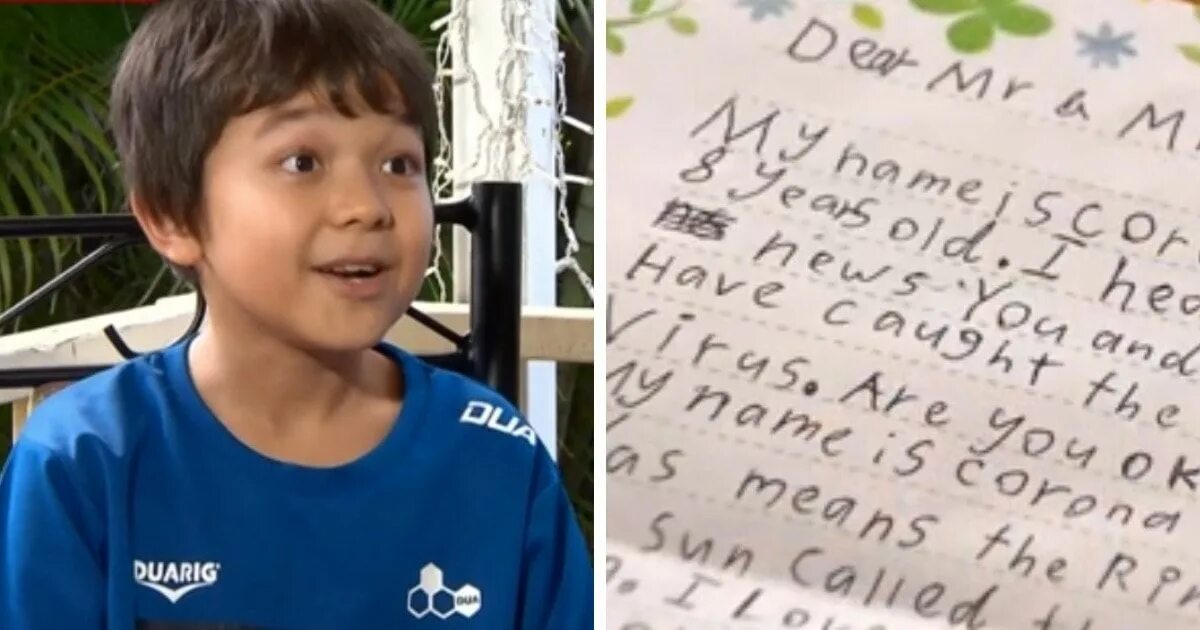 DUA
DUARIG
DUA
Dear Mr & M
My name is Cor
8 years old. I hea
news. You and
Have caught the
Virus. Are you ok
My name is corona
as means the Rin
sun called th
. I Love